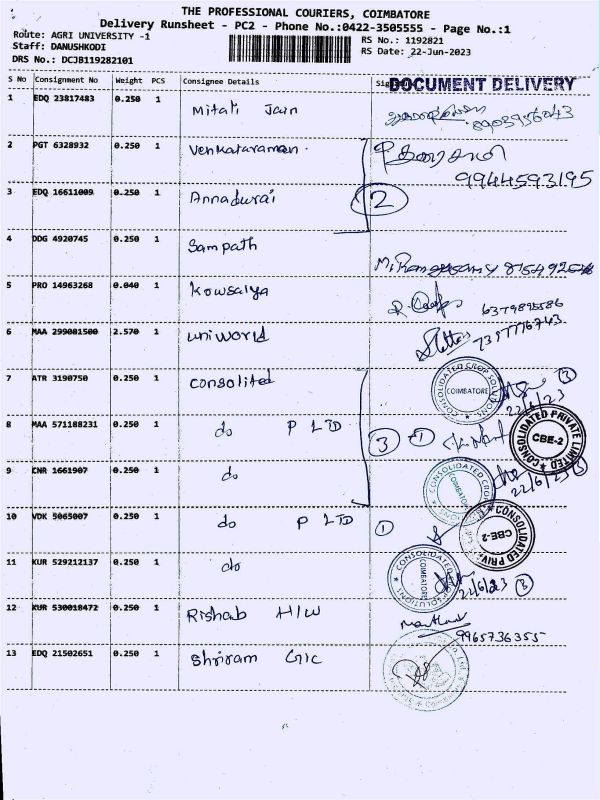 THE PROFESSIONAL COURIERS, COIMBATORE
Delivery Runsheet - PC2 - Phone No.:0422-3505555 - Page No.:1
Route: AGRI UNIVERSITY -1 RS No.: 1192821
Staff: DANUSHKODI RS Date: 22-Jun-2023
DRS No.: DCJB119282101
S No Consignment No Weight PCS Consignee Details DOCUMENT DELIVERY
1 EDQ 23817483 0.250 1 Mitali Jain
2 PGT 6328932 0.250 1 Venkataraman.
9944593195
3 EDQ 16611009 0.250 1 Annadurai 2
4 DDG 4920745 0.250 1 Sampath
5 PRO 14963268 0.040 1 Kowsalya 6379895586
6 MAA 299081500 2.570 1 uniworld 7357776743
7 ATR 3190750 0.250 1 Consolited CONSOLIDATED CROP SOLUTIONS COIMBATORE 3
22/6/23
8 MAA 571188231 0.250 1 do P LTD 3 1 CONSOLIDATED PRIVATE LIMITED CBE-2
9 CNR 1661907 0.250 1 do CONSOLIDATED CROP COIMBATORE 22/6/23 3
10 VDK 5065007 0.250 1 do P LTD 1 CONSOLIDATED CBE-2
11 KUR 529212137 0.250 1 do CONSOLIDATED SOLUTIONS COIMBATORE 22/6/23 3
12 KUR 530018472 0.250 1 Rishab H/W
9965736355
13 EDQ 21502651 0.250 1 Shriram GIC